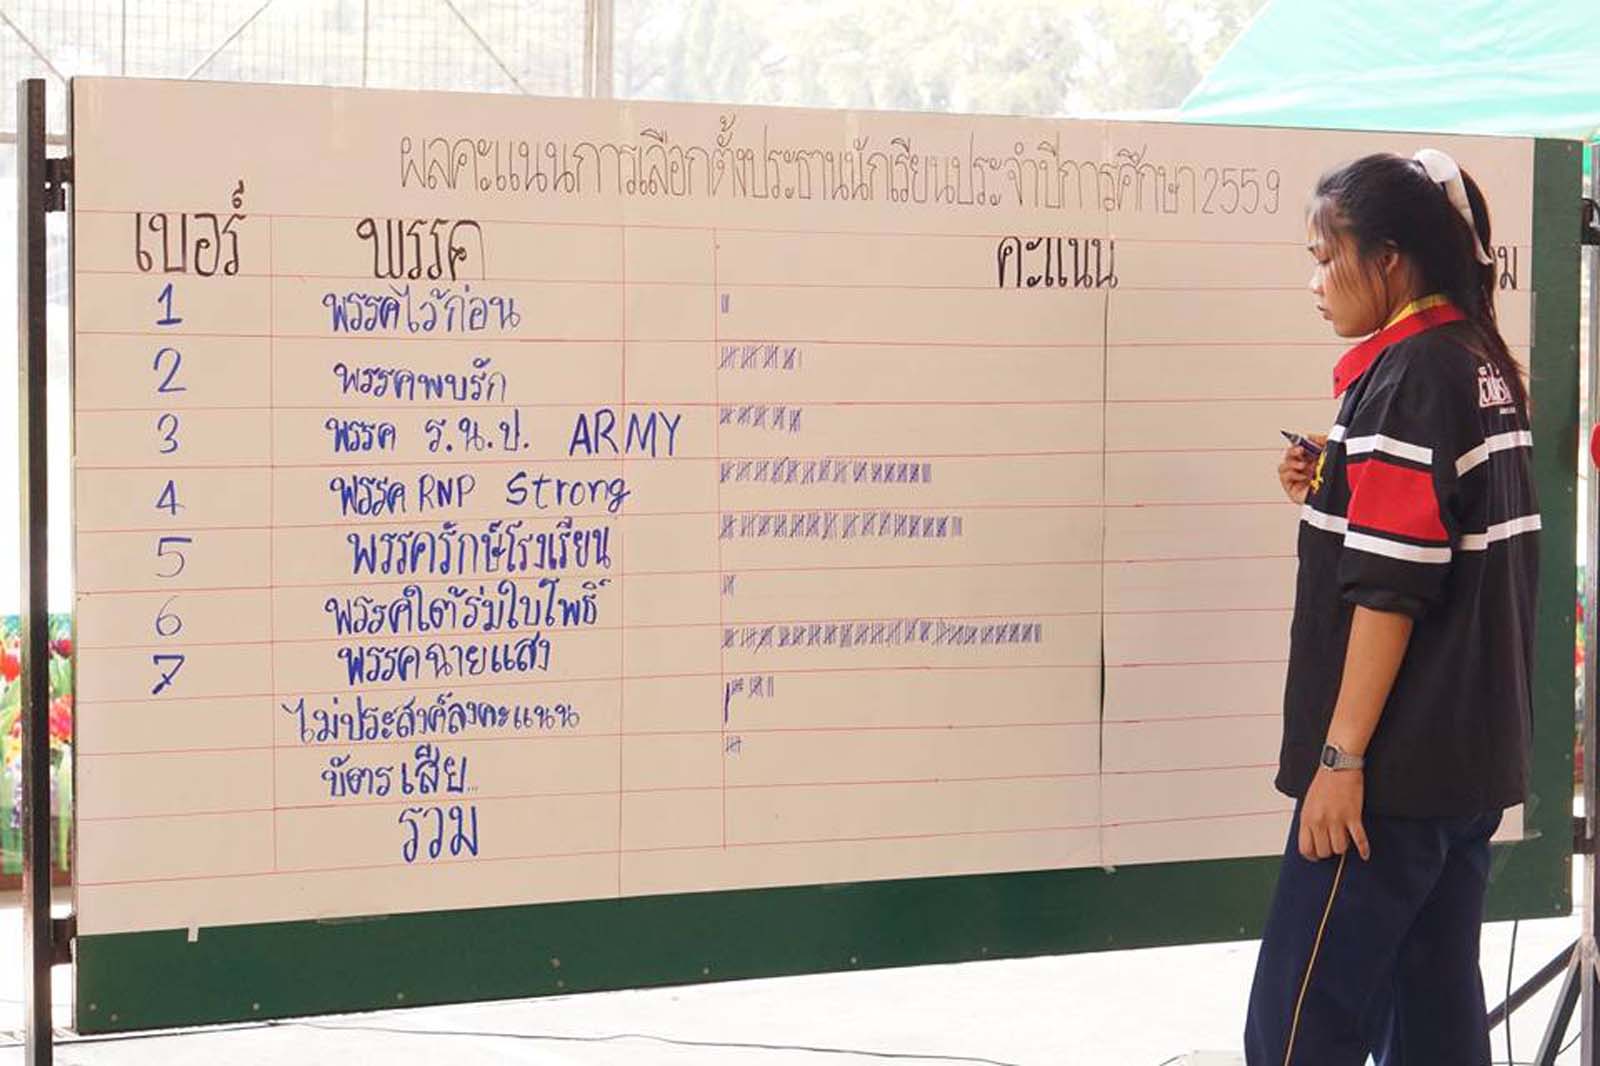 ผลคะแนนการเลือกตั้งประธานนักเรียนประจำปีการศึกษา 2559
เบอร์ พรรค คะแนน
1 พรรคไว้ก่อน
2 พรรคพบรัก
3 พรรค ร.น.ป. ARMY
4 พรรค RNP Strong
5 พรรครักษ์โรงเรียน
6 พรรคใต้ร่มใบโพธิ์
7 พรรคฉายแสง
ไม่ประสงค์ลงคะแนน
บัตรเสีย...
รวม